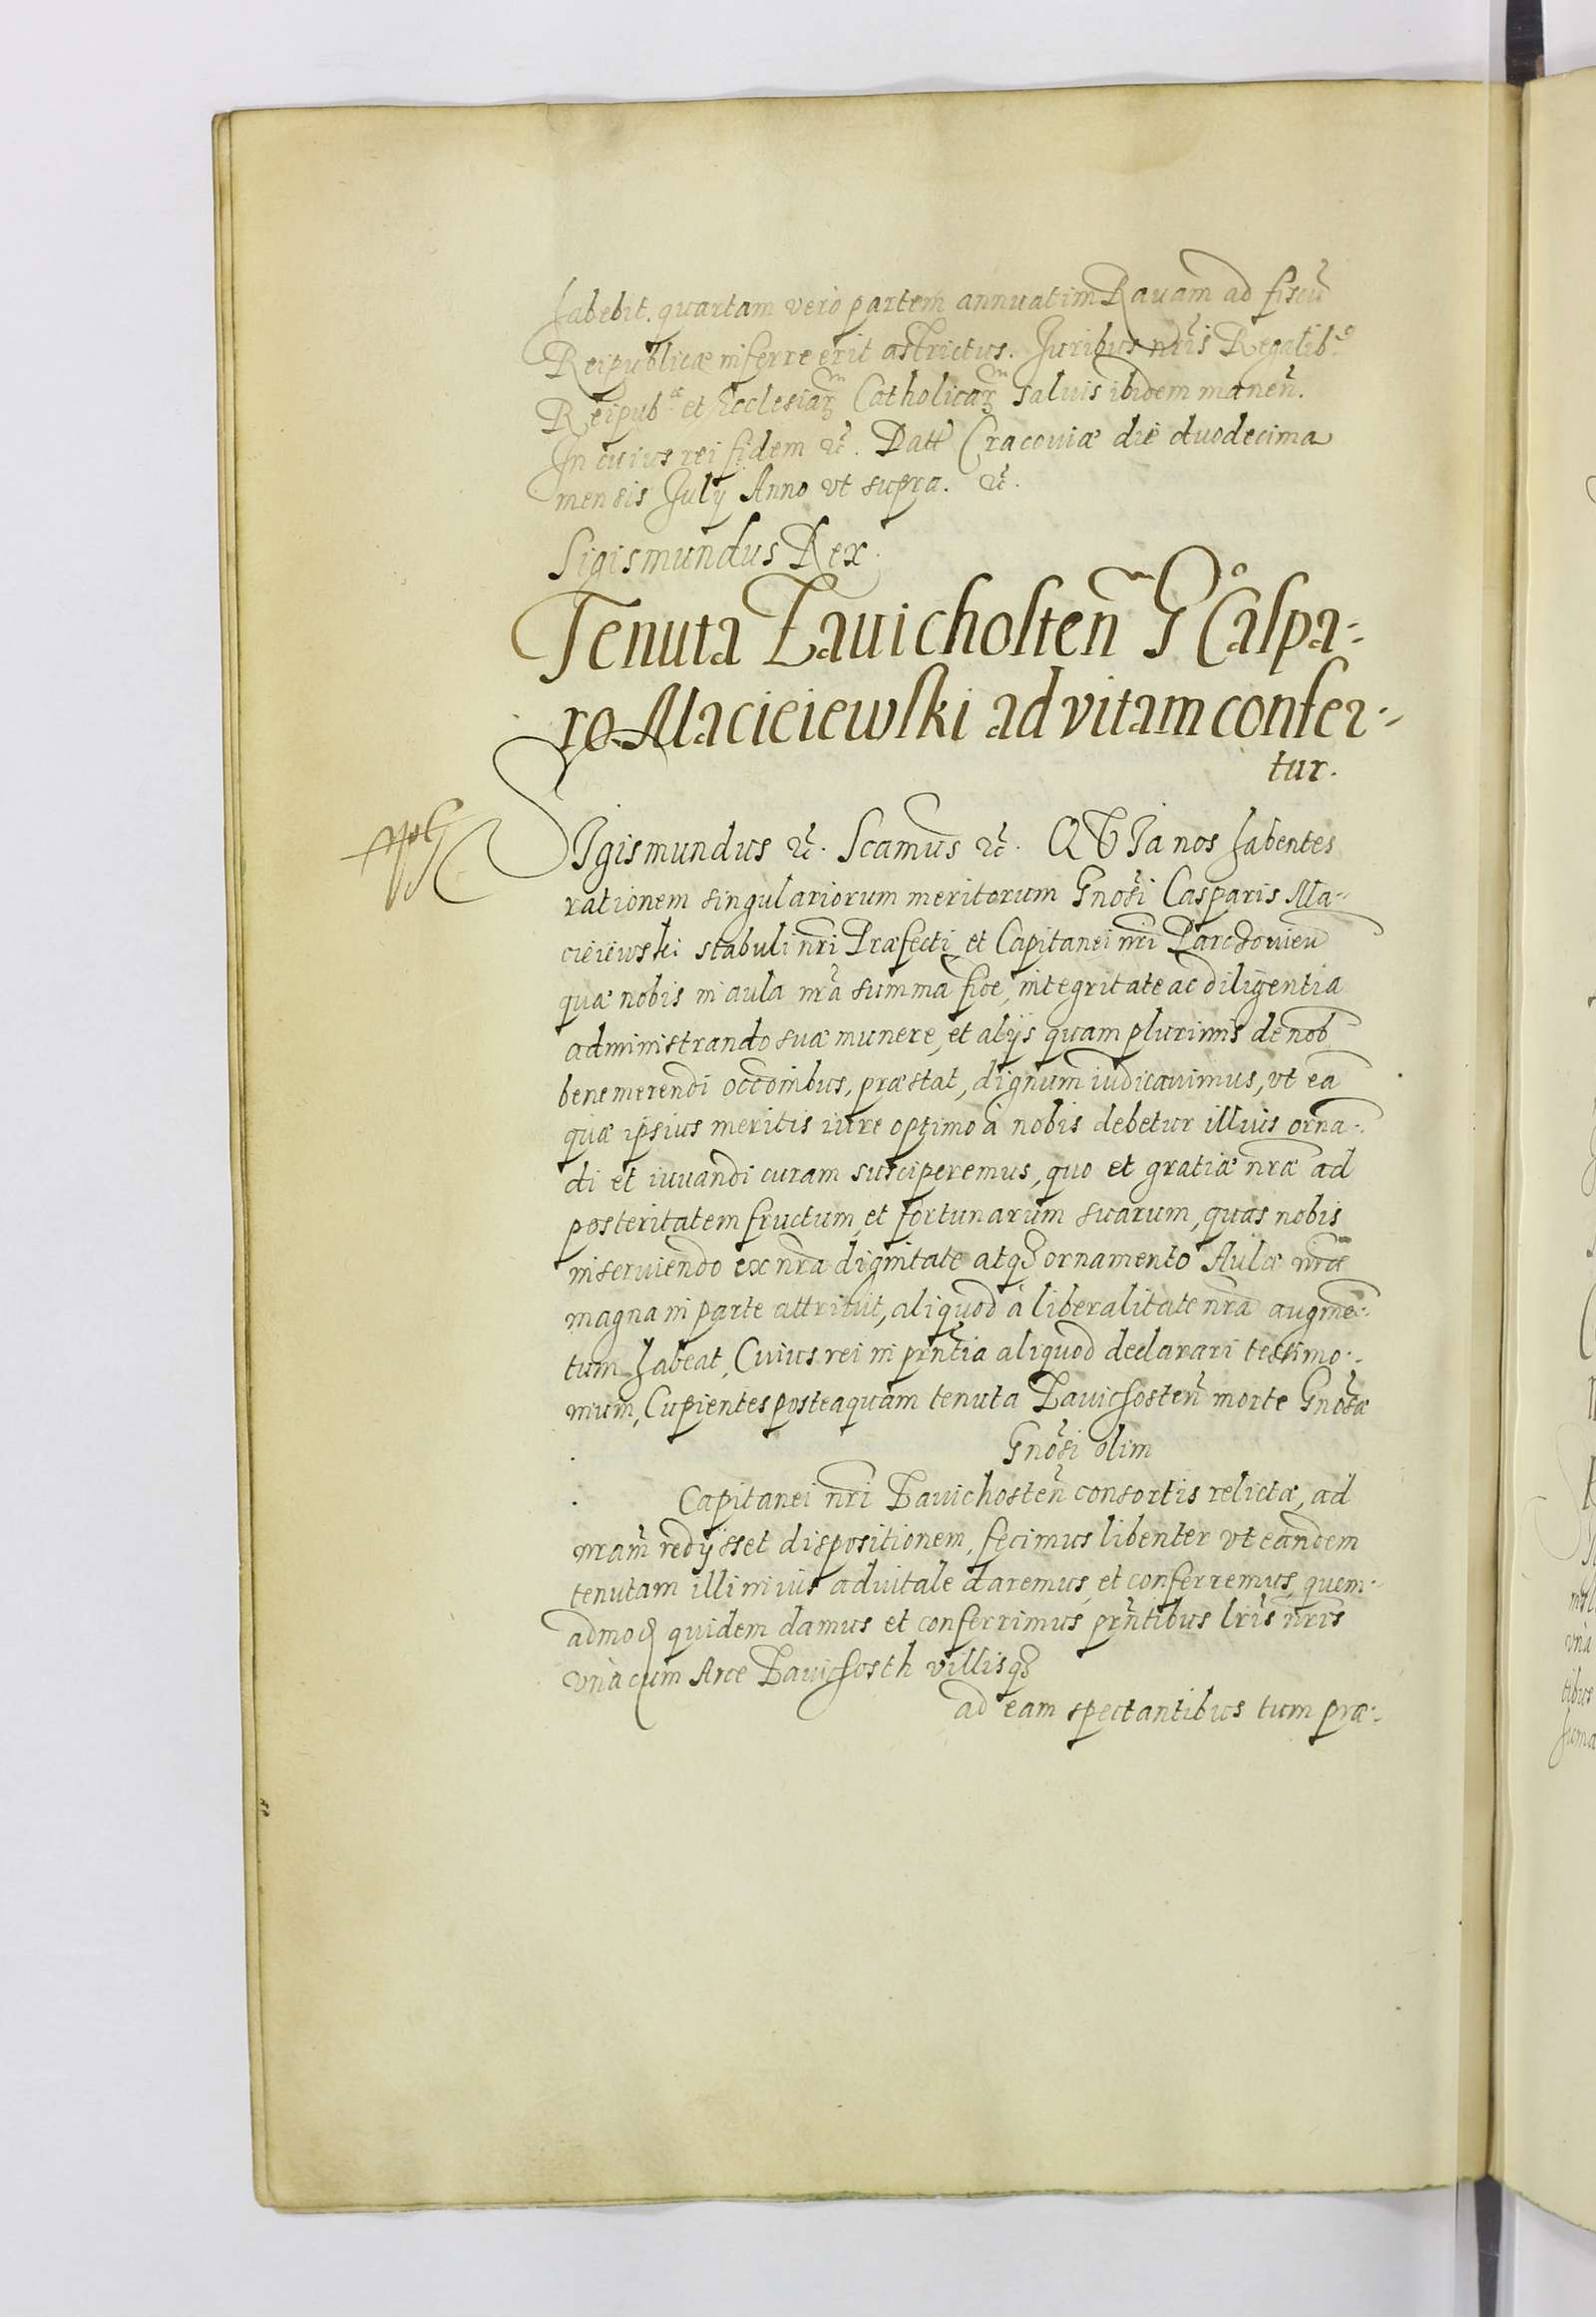 habebit. quartam verò partem annuatim Rauam ad fiscũ
Reipublicæ inferre erit astrictus. Juribus nr̃is Regalibꝰ
Reipubᵃ et Ecclesiarͫ Catholicarͫ saluis ibidem maneñ.
In cuius rei fidem ⁊c̃. Datt Cracouiæ die duodecima
mensis July Anno vt supra. ⁊c̃.
Sigismundus Rex.
Tenuta Zauichosteñ G° Caspa-
ro Macieiewski ad vitam confer-
tur.
SIgismundus ⁊c̃. Scamus ⁊c̃. QVIa nos habentes
rationem singulariorum meritorum Gnõsi Casparis Ma-
cieiewski stabuli nr̃i Præfecti et Capitanei nr̃i Parczouień
quæ nobis in aula nr̃a summa fide, integritate ac diligentia
administrando suæ munere, et alijs quam plurimis de nob
benemerendi occõnibus, præstat, dignum iudicauimus, vt ea
quæ ipsius meritis iure optimo à nobis debetur illius orna-
di et iuuandi curam susciperemus, quo et gratiæ nr̃æ ad
posteritatem fructum, et fortunarum suarum, quas nobis
inseruiendo ex nr̃a dignitate atqȝ ornamento Aulæ nr̃æ
magna in parte attriuit, aliquod à liberalitate nr̃a augmẽ-
tum habeat, Cuius rei in pr̃ntia aliquod declarari testimo-
nium, Cupientes posteaquam tenuta Zauichosteñ morte Gnõsæ
Gnõsi olim
Capitanei nr̃i Zauichosteñ consortis relictæ, ad
nram̃ redijsset dispositionem, fecimus libenter vt eandem
tenutam illi in ius aduitale daremus, et conferremus, quem-
admoḍ quidem damus et conferrimus pr̃ntibus lr̃is nr̃is
vnà cum Arce Zauichosth villisqȝ
ad eam spectantibus tum præ-